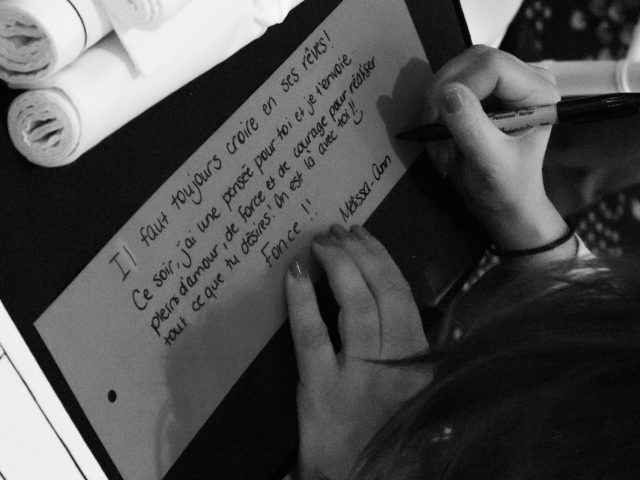 Il faut toujours croire en ses rêves!
Ce soir, j'ai une pensée pour toi et je t'envoie
pleins d'amour, de force et de courage pour réaliser
tout ce que tu désires! On est là avec toi!!
Fonce!!
Melissa-Ann